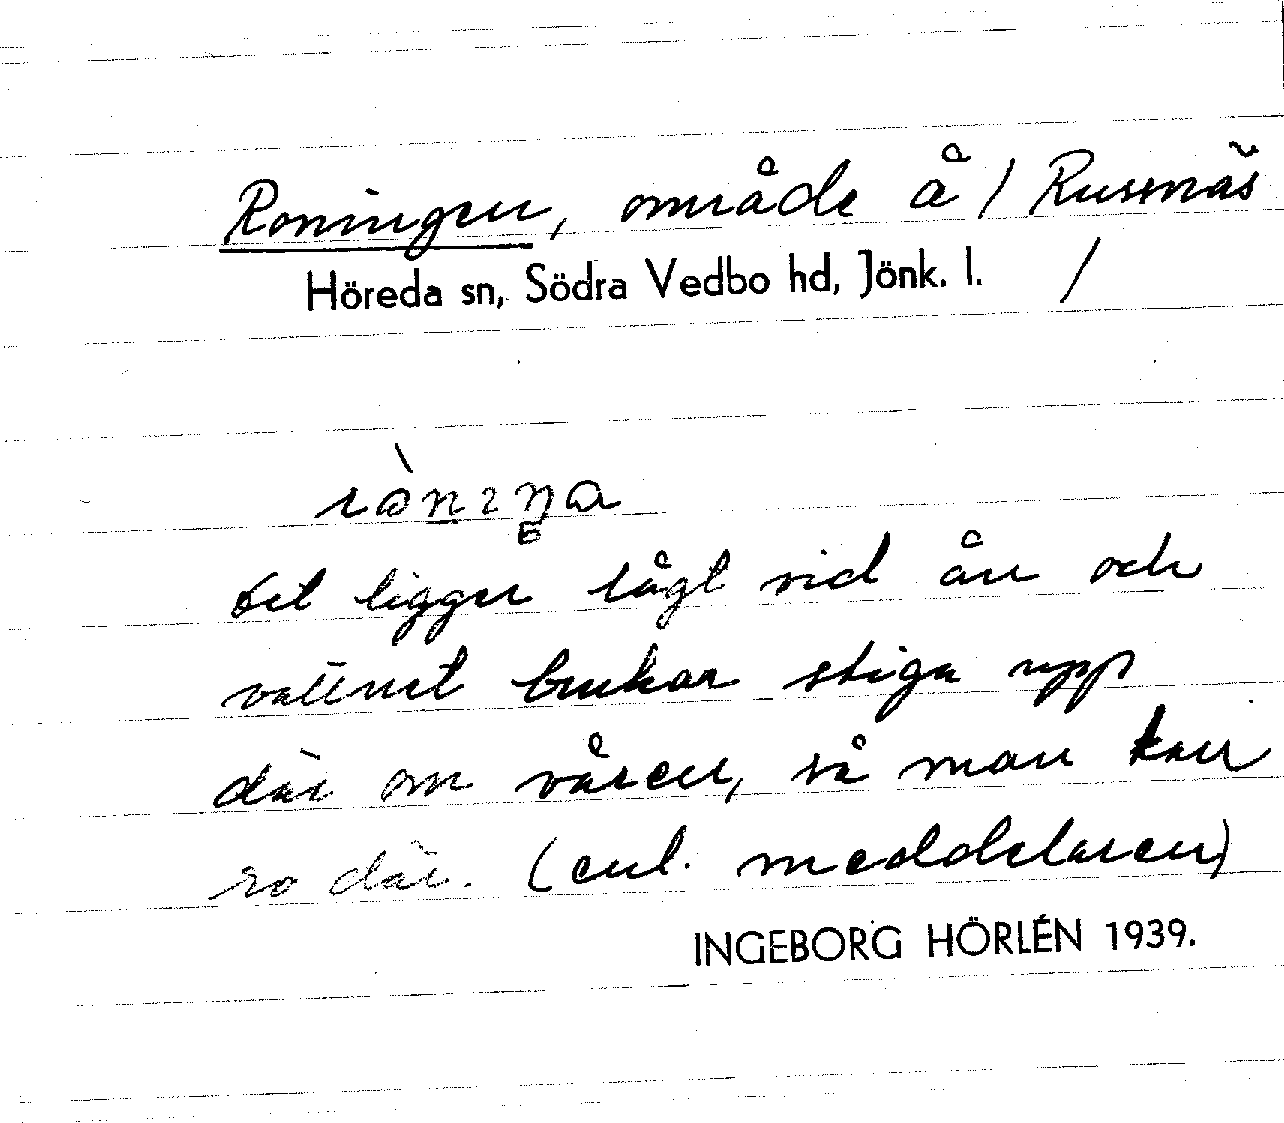 Roningen, område å / Rusenäs
Höreda sn, Södra Vedbo hd, Jönk. l. /
det ligger lågt vid ån och
vattnet brukar stiga upp
där om våren, så man kan
ro där. (enl. meddelaren)
INGEBORG HÖRLÉN 1939.